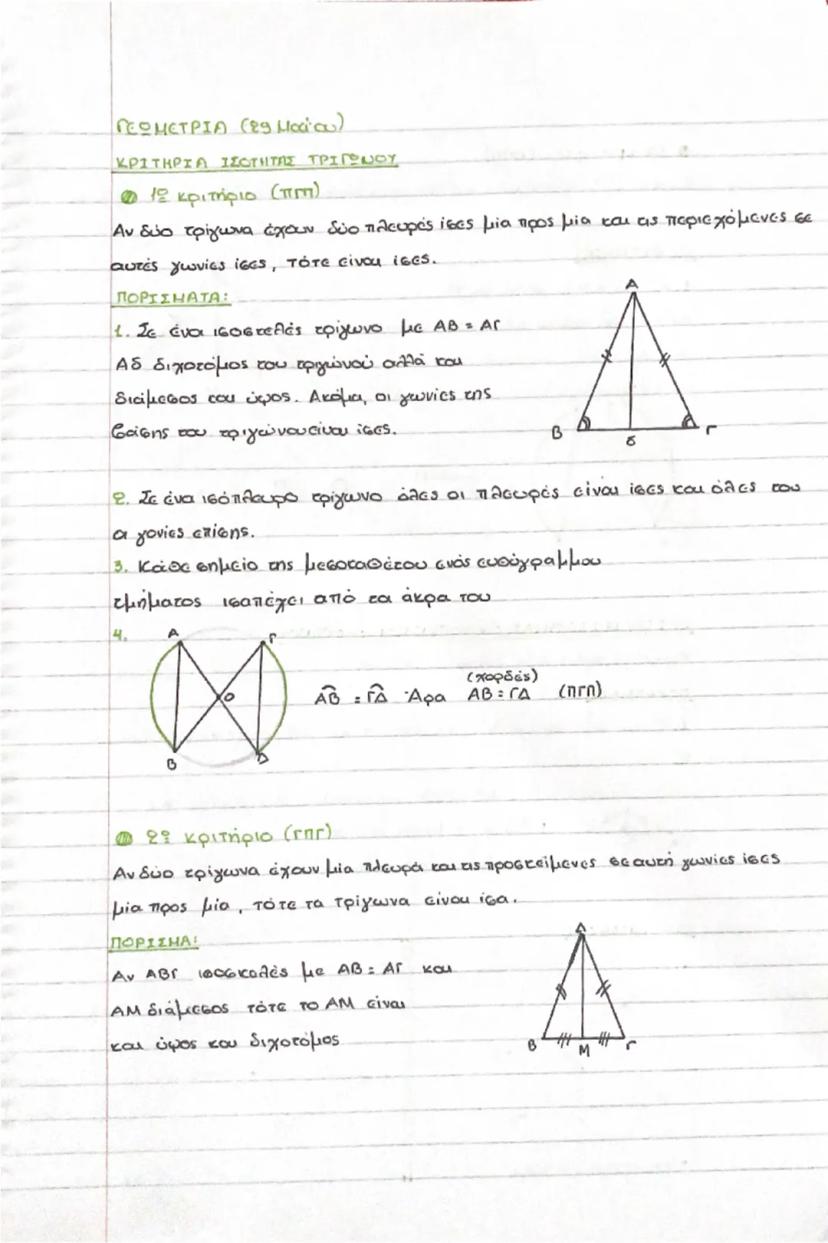 ΓΕΩΜΕΤΡΙΑ (29 Μαΐου)
ΚΡΙΤΗΡΙΑ ΙΣΟΤΗΤΑΣ ΤΡΙΓΩΝΟΥ
1ο κριτήριο (ΠΓΠ)
Αν δύο τρίγωνα έχουν δύο πλευρές ίσες μία προς μία και τις περιεχόμενες σε
αυτές γωνίες ίσες, τότε είναι ίσες.
ΠΟΡΙΣΜΑΤΑ:
1. Σε ένα ισοσκελές τρίγωνο με ΑΒ = ΑΓ
Αδ διχοτόμος του τριγώνού αλλά και
διάμεσος και ύψος. Ακόμα, οι γωνίες της
βάσης του τριγώνου είναι ίσες.
Α
Β
δ
Γ
2. Σε ένα ισόπλευρο τρίγωνο όλες οι πλευρές είναι ίσες και όλες του
οι γονίες επίσης.
3. Κάθε σημείο της μεσοκαθέτου ενός ευθύγραμμου
τμήματος ισαπέχει από τα άκρα του
4.
Α
Γ
Ο
Β
Δ
(χορδές)
ΑΒ = ΓΔ Άρα ΑΒ = ΓΔ (ΠΓΠ)
2ο κριτήριο (ΓΠΓ)
Αν δύο τρίγωνα έχουν μία πλευρά και τις προσκείμενες σε αυτή γωνίες ίσες
μία προς μία, τότε τα τρίγωνα είναι ίσα.
ΠΟΡΙΣΜΑ:
Αν ΑΒΓ ισοσκελές με ΑΒ = ΑΓ και
ΑΜ διάμεσος τότε το ΑΜ είναι
και ύψος και διχοτόμος
Α
Β
Μ
Γ